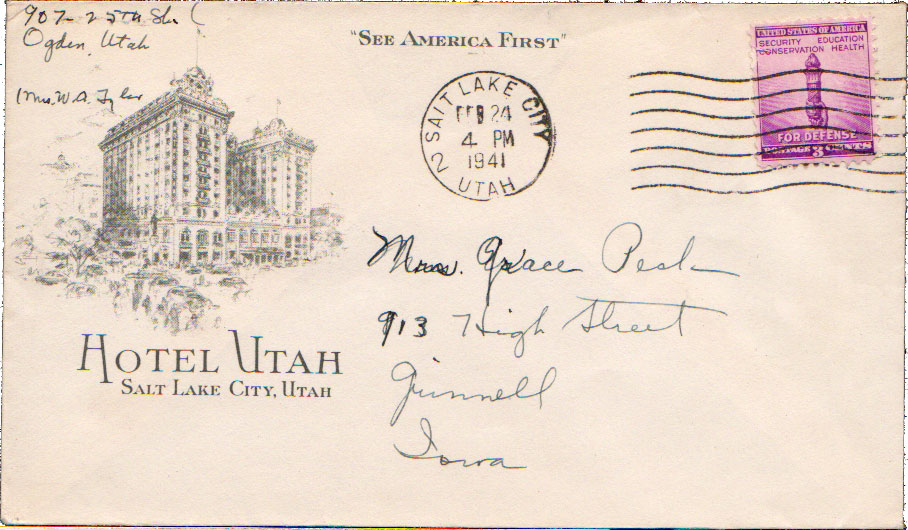 907-25th St.
Ogden, Utah
(Mrs. W. A. Tyler
"SEE AMERICA FIRST"
SALT LAKE CITY
FEB 24
4 PM
1941
2 UTAH
UNITED STATES OF AMERICA
SECURITY EDUCATION
CONSERVATION HEALTH
FOR DEFENSE
POSTAGE 3 CENTS
Mrs. Grace
913 High Street
Grinnell
Iowa
HOTEL UTAH
SALT LAKE CITY, UTAH